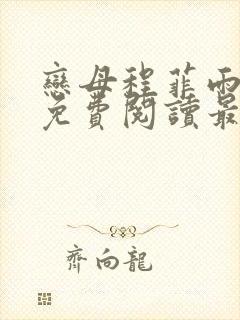 戀母程菲雨
免費閱讀最
齊向龍